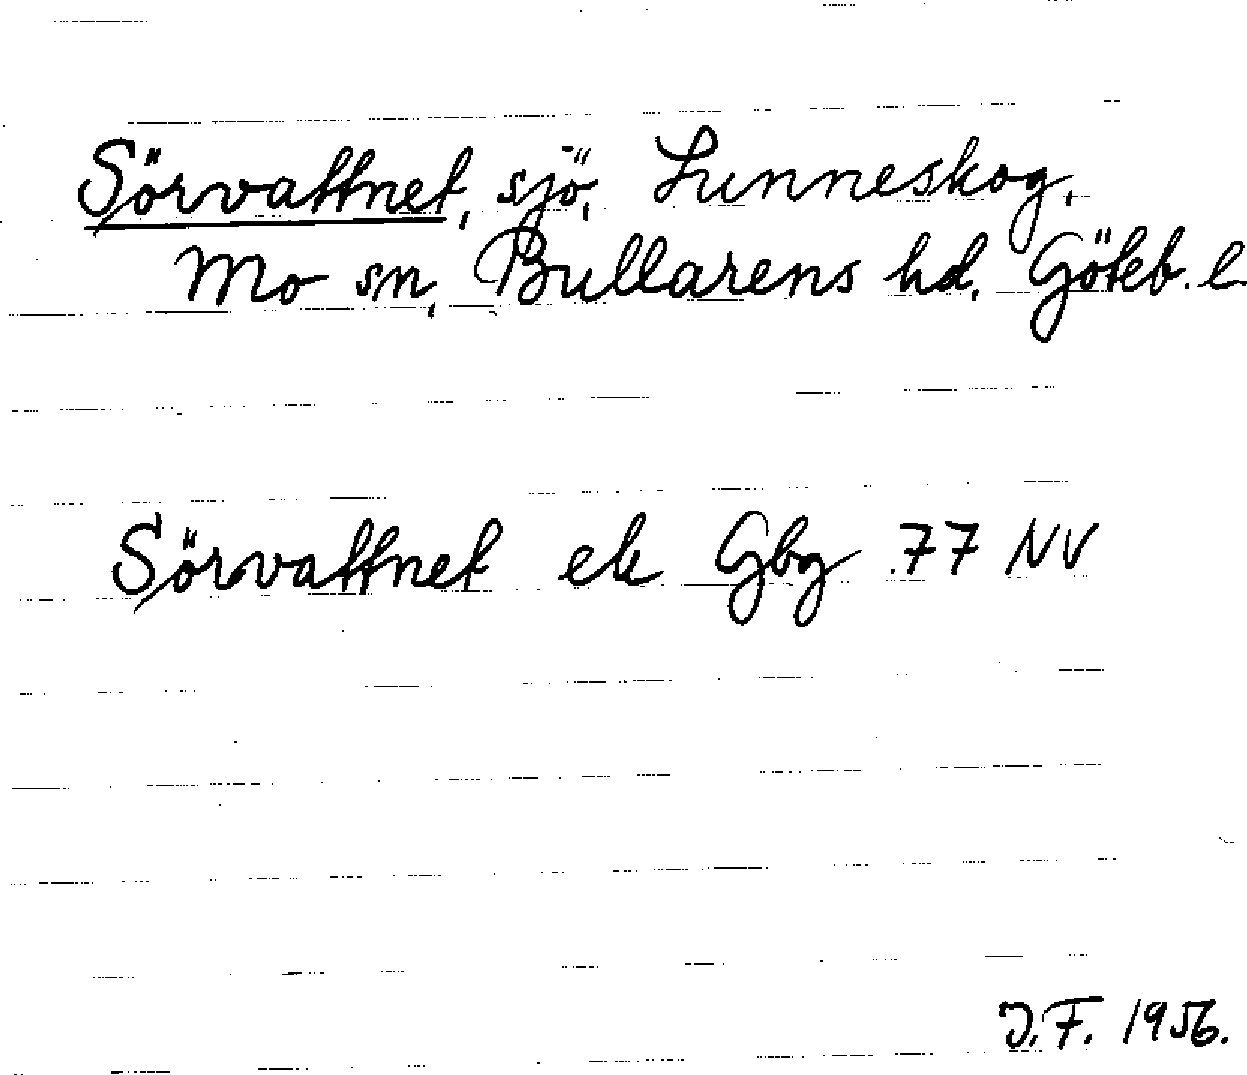 Sörvattnet, sjö, Lunneskog,
Mo sn, Bullarens hd, Göteb. l
Sörvattnet ek Gbg 77 NV
J.F. 1956.